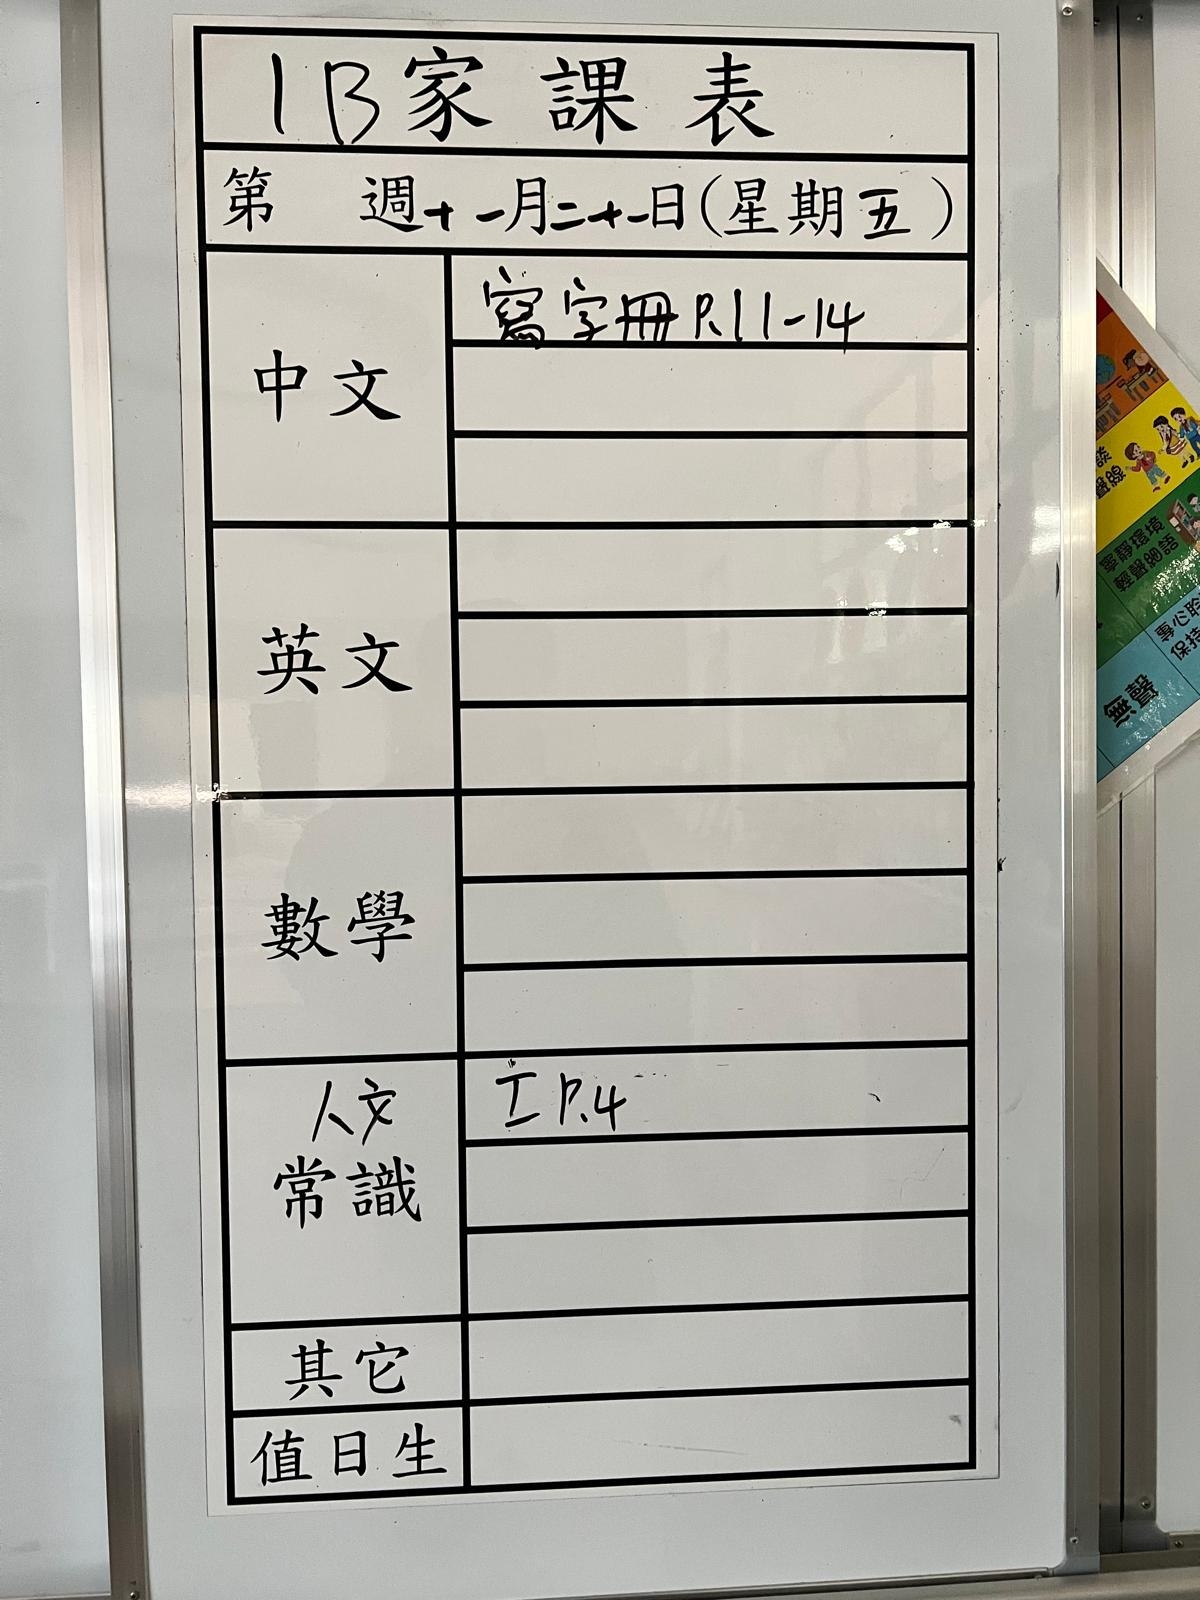 1B家課表
第 週十一月二十一日(星期五)
中文
寫字冊P.11-14
英文
數學
人文
常識
工P.4
其它
值日生
談
聲線
寧靜環境
輕聲細語
專心聆
保持
無聲